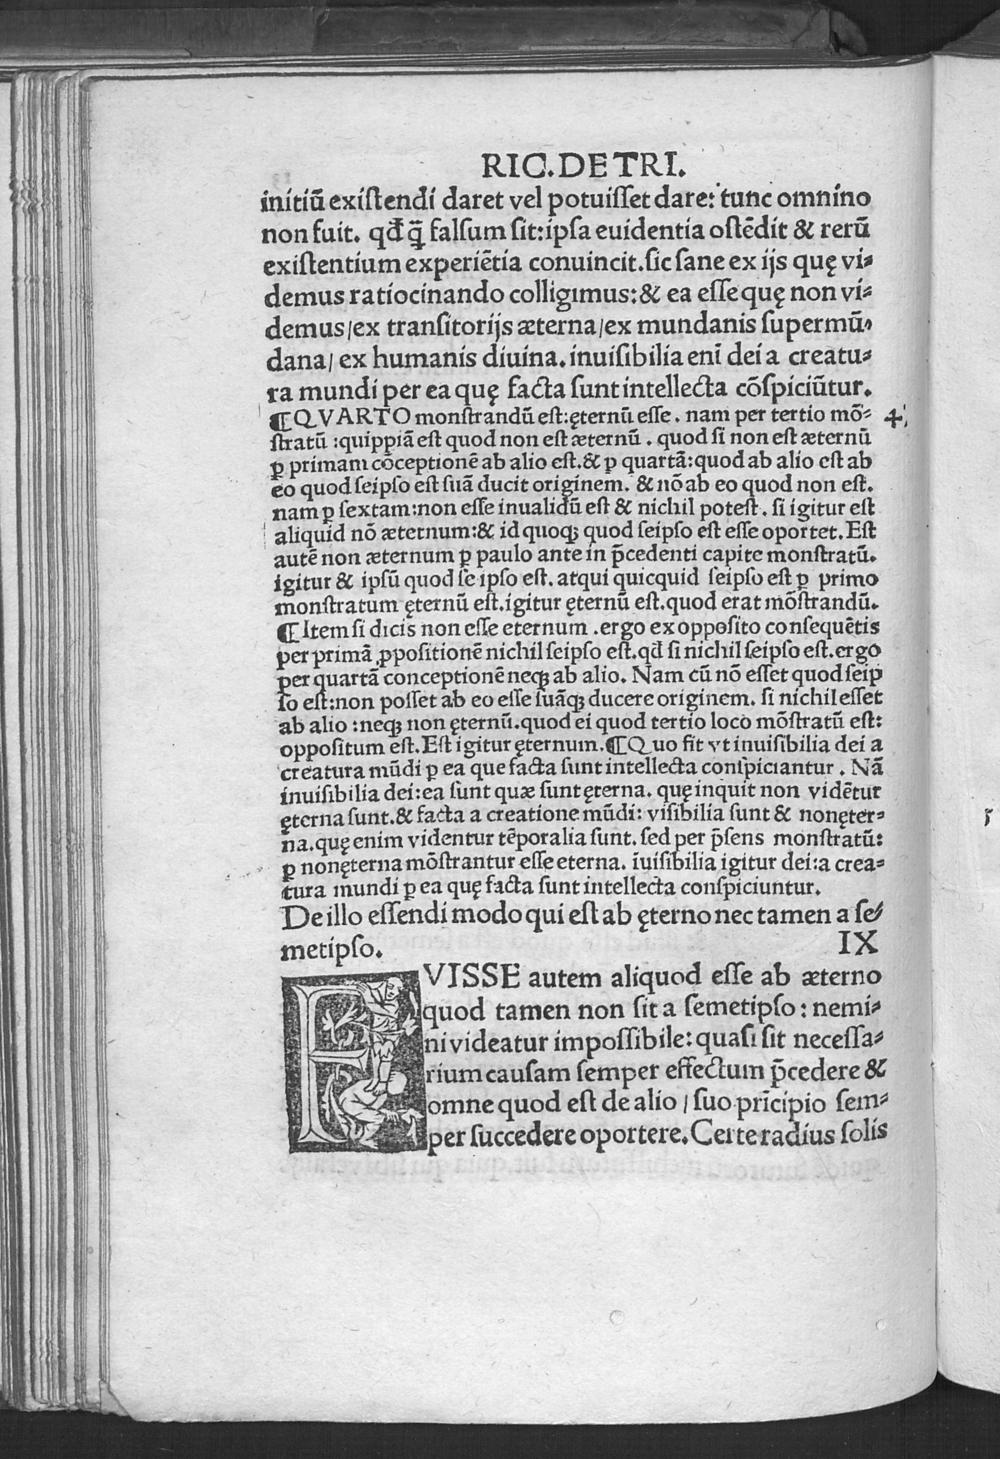 RIC. DE TRI.
initiū existendi daret vel potuisset dare: tunc omnino
non fuit. qđ q̄ falsum sit: ipsa euidentia ostēdit & rerū
existentium experiētia conuincit. sic sane ex ijs quę vi⸗
demus ratiocinando colligimus: & ea esse quę non vi⸗
demus/ex transitorijs æterna/ex mundanis supermū⸗
dana/ ex humanis diuina. inuisibilia eni̅ dei a creatu⸗
ra mundi per ea quę facta sunt intellecta cōspiciūtur.
¶QVARTO monstrandū est: ęternū esse. nam per tertio mō⸗ 4
stratū: quippiā est quod non est æternū. quod si non est æternū
ꝑ primam cōceptionē ab alio est. & ꝑ quartā: quod ab alio est ab
eo quod seipso est suā ducit originem. & nō ab eo quod non est.
nam ꝑ sextam: non esse inualidū est & nichil potest. si igitur est
aliquid nō æternum: & id quoqꝫ quod seipso est esse oportet. Est
autē non æternum ꝑ paulo ante in p̄cedenti capite monstratū.
igitur & ipsū quod se ipso est. atqui quicquid seipso est ꝑ primo
monstratum ęternū est. igitur ęternū est. quod erat mōstrandū.
¶Item si dicis non esse eternum. ergo ex opposito consequētis
per primā ꝓpositionē nichil seipso est. qđ si nichil seipso est. ergo
per quartā conceptionē neqꝫ ab alio. Nam cū nō esset quod seip
so est: non posset ab eo esse suāqꝫ ducere originem. si nichil esset
ab alio: neqꝫ non ęternū. quod ei quod tertio loco mōstratū est:
oppositum est. Est igitur ęternum. ¶Quo fit vt inuisibilia dei a
creatura mūdi ꝑ ea que facta sunt intellecta conspiciantur. Nā
inuisibilia dei: ea sunt quæ sunt ęterna. quę inquit non vidētur
ęterna sunt. & facta a creatione mūdi: visibilia sunt & non ęter⸗
na. quę enim videntur tēporalia sunt. sed per p̄sens monstratū:
ꝑ non ęterna mōstrantur esse eterna. īuisibilia igitur dei: a crea⸗
tura mundi ꝑ ea quę facta sunt intellecta conspiciuntur.
De illo essendi modo qui est ab ęterno nec tamen a se⸗
metipso. IX
FVISSE autem aliquod esse ab æterno
quod tamen non sit a semetipso: nemi⸗
ni videatur impossibile: quasi sit necessa⸗
rium causam semper effectum p̄cedere &
omne quod est de alio/ suo prīcipio sem⸗
per succedere oportere. Certe radius solis